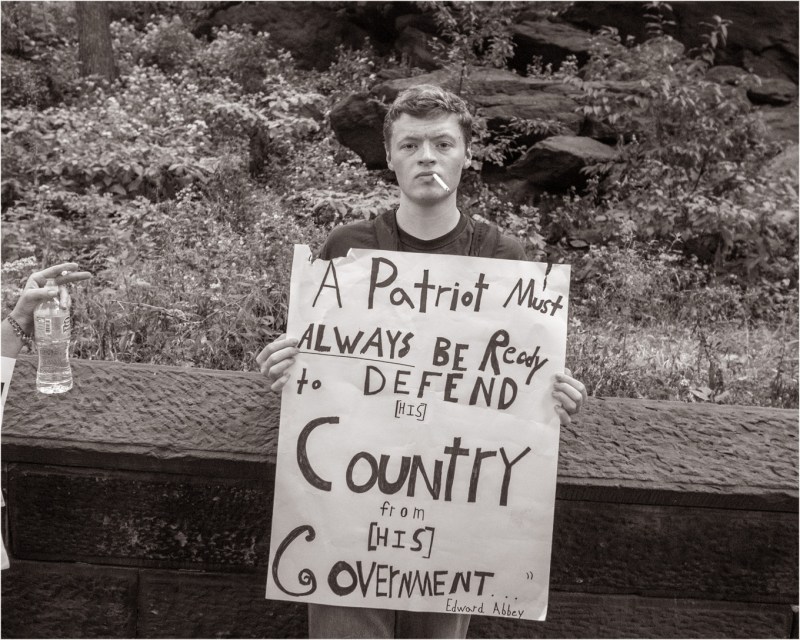 A Patriot Must
ALWAYS BE Ready
to DEFEND
[HIS]
COUNTRY
from
[HIS]
GOVERNMENT... "
Edward Abbey